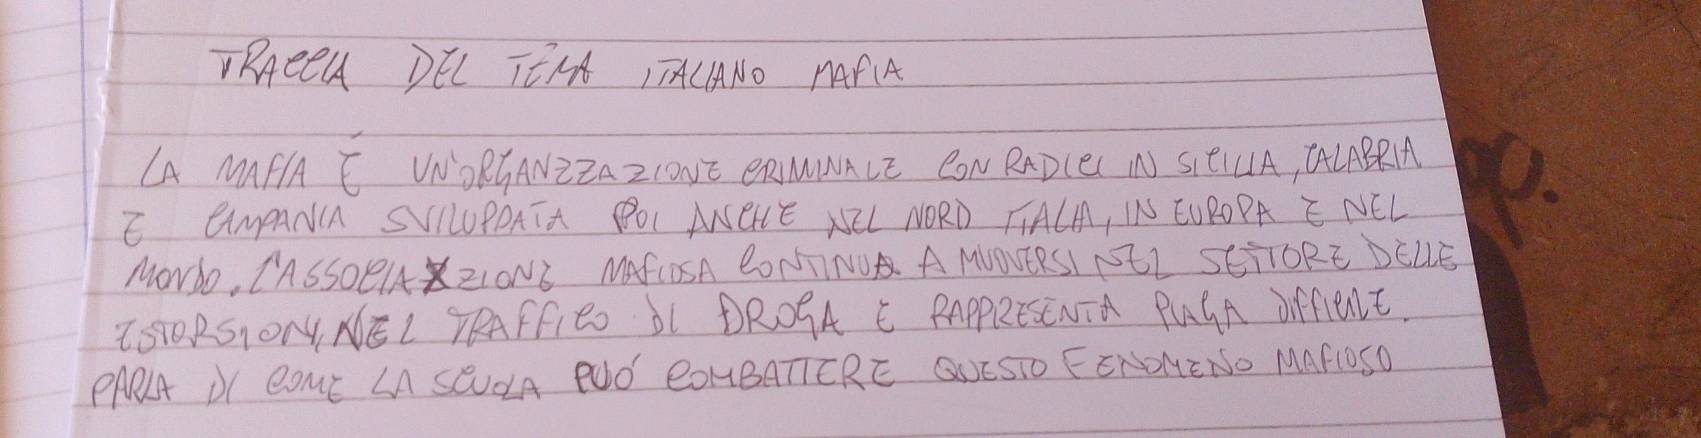 TRACCIA DEL TEMA ITALIANO MAFIA
LA MAFIA È UN'ORGANZZAZIONE CRIMINALE CON RADICI IN SICILIA, CALABRIA
E CAMPANIA SVILUPPATA POI ANCHE NEL NORD ITALIA, IN EUROPA E NEL
MONDO. L'ASSOCIAZIONE MAFIOSA CONTINUA A MUOVERSI NEL SETTORE DELLE
ESTORSIONI, NEL TRAFFICO DI DROGA E RAPPRESENTA PIAGA DIFFICILE.
PARLA DI COME LA SCUOLA PUÓ COMBATTERE QUESTO FENOMENO MAFIOSO